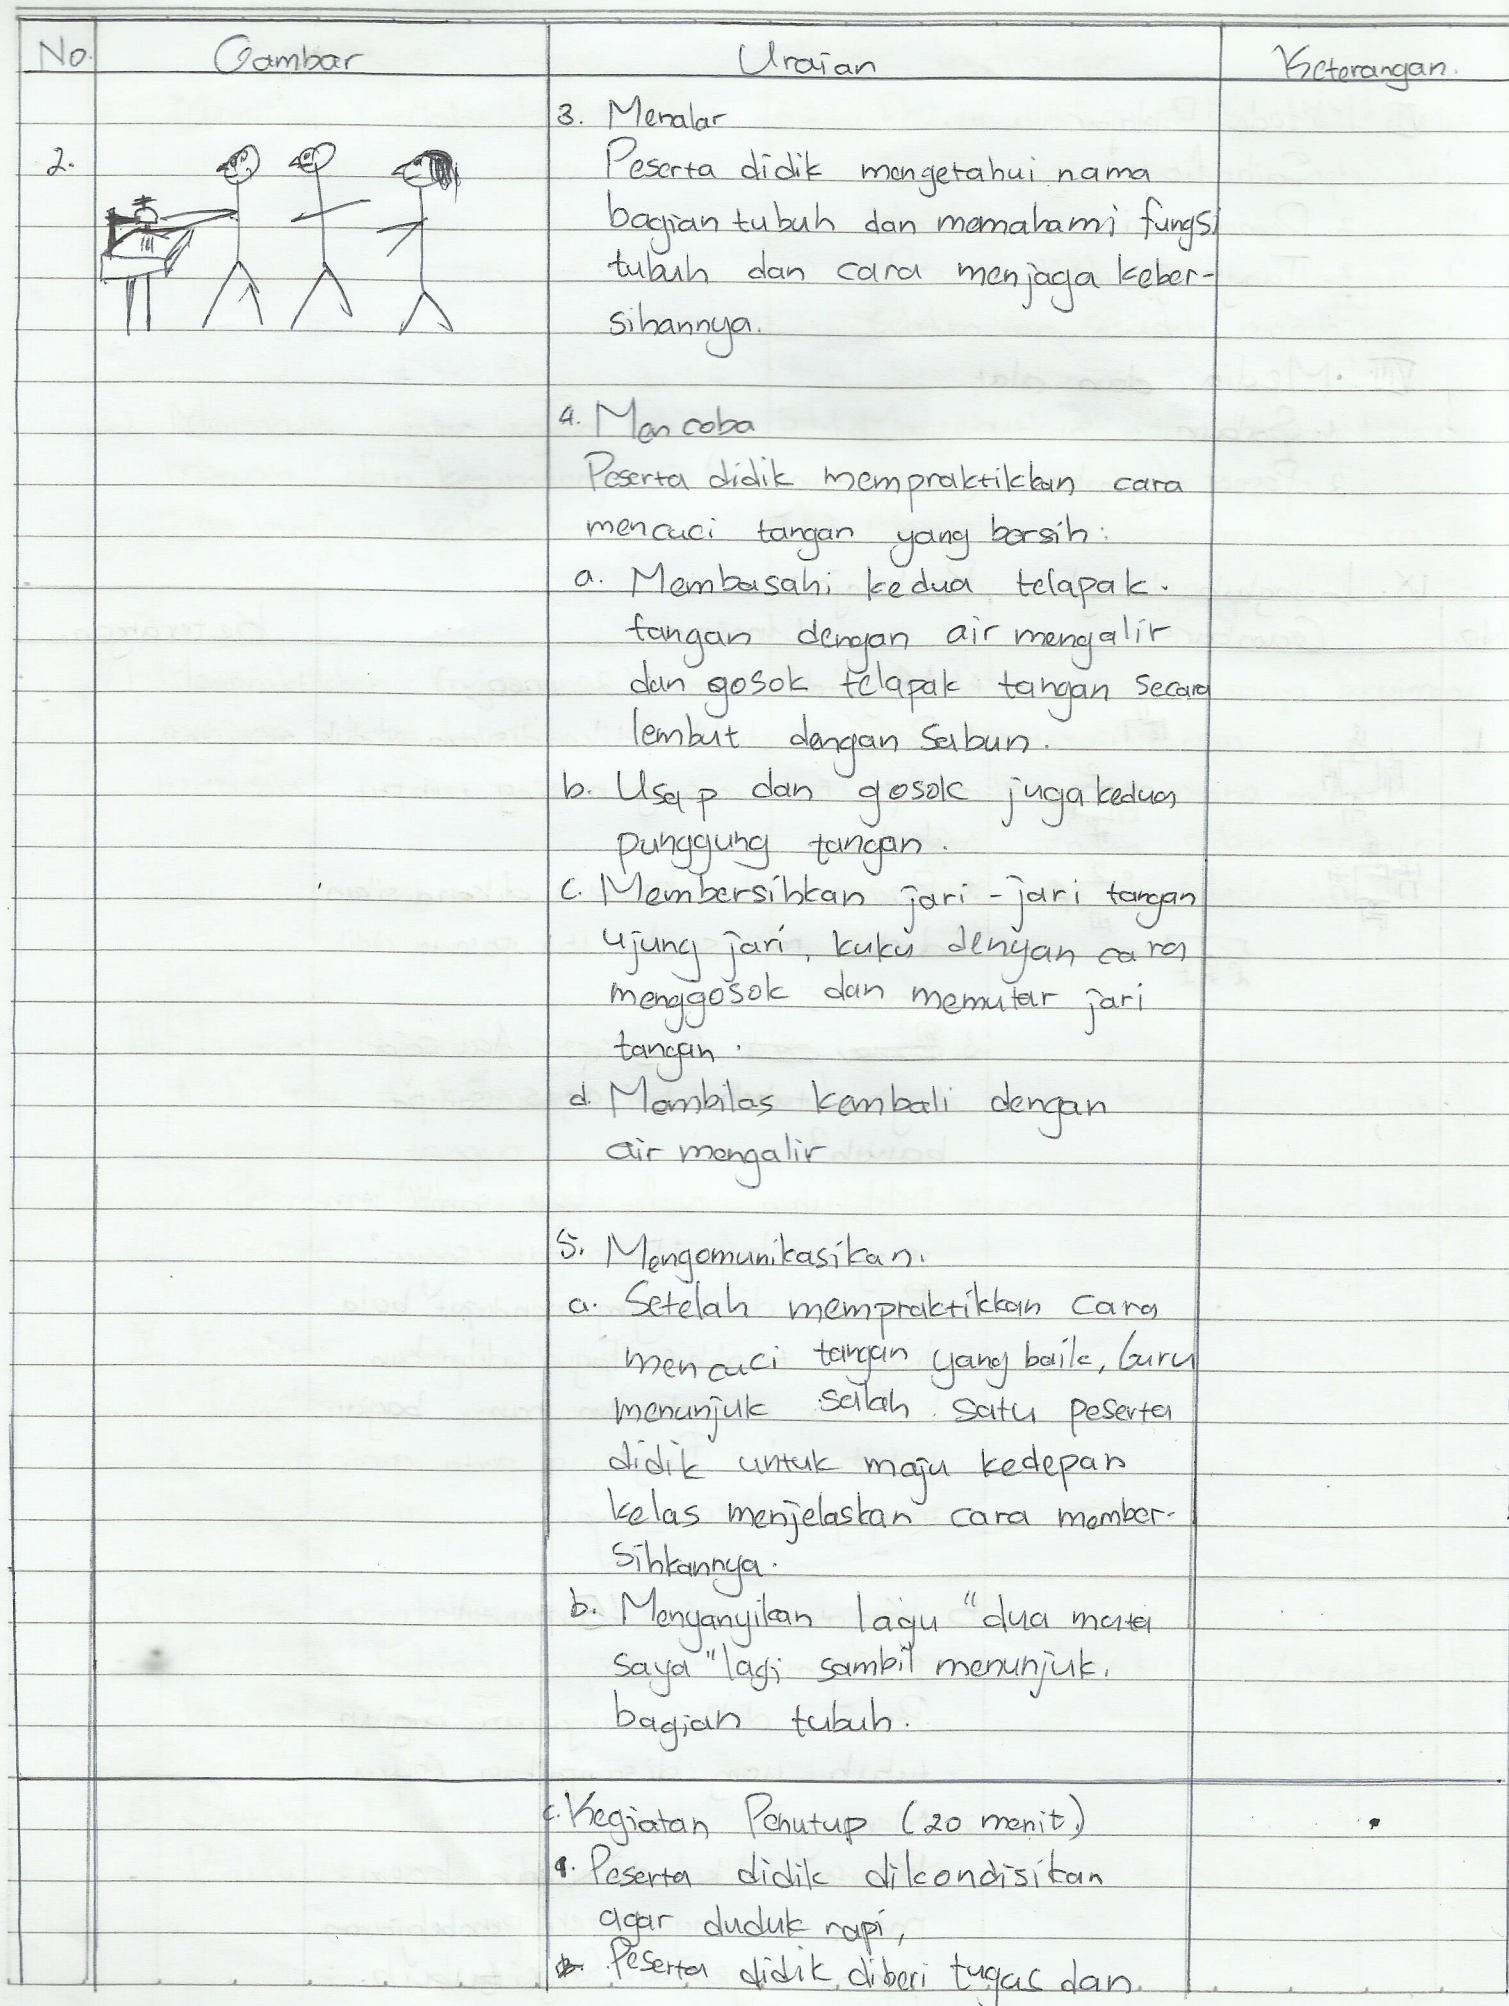 No. Gambar Uraian Keterangan.
3. Menalar
2. Peserta didik mengetahui nama
bagian tubuh dan memahami fungsi
tubuh dan cara menjaga keber-
sihannya.
4. Mencoba
Peserta didik mempraktikkan cara
mencuci tangan yang bersih:
a. Membasahi kedua telapak.
tangan dengan air mengalir
dan gosok telapak tangan secara
lembut dengan Sabun.
b. Usap dan gosok juga kedua
punggung tangan.
c. Membersihkan jari-jari tangan
ujung jari, kuku dengan cara
menggosok dan memutar jari
tangan.
d. Membilas kembali dengan
air mengalir
5. Mengomunikasikan.
a. Setelah mempraktikkan cara
mencuci tangan yang baik, Guru
menunjuk salah satu peserta
didik untuk maju kedepan
kelas menjelaskan cara member-
sihkannya.
b. Menyanyikan lagu "dua mata
saya" lagi sambil menunjuk.
bagian tubuh.
c. Kegiatan Penutup (20 menit)
a. Peserta didik dikondisikan
agar duduk rapi,
b. Peserta didik diberi tugas dan